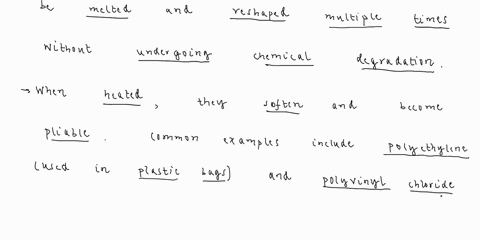 be melted and reshaped multiple times
without undergoing chemical degradation.
→ When heated, they soften and become
pliable. Common examples include polyethylene
(used in plastic bags) and polyvinyl chloride